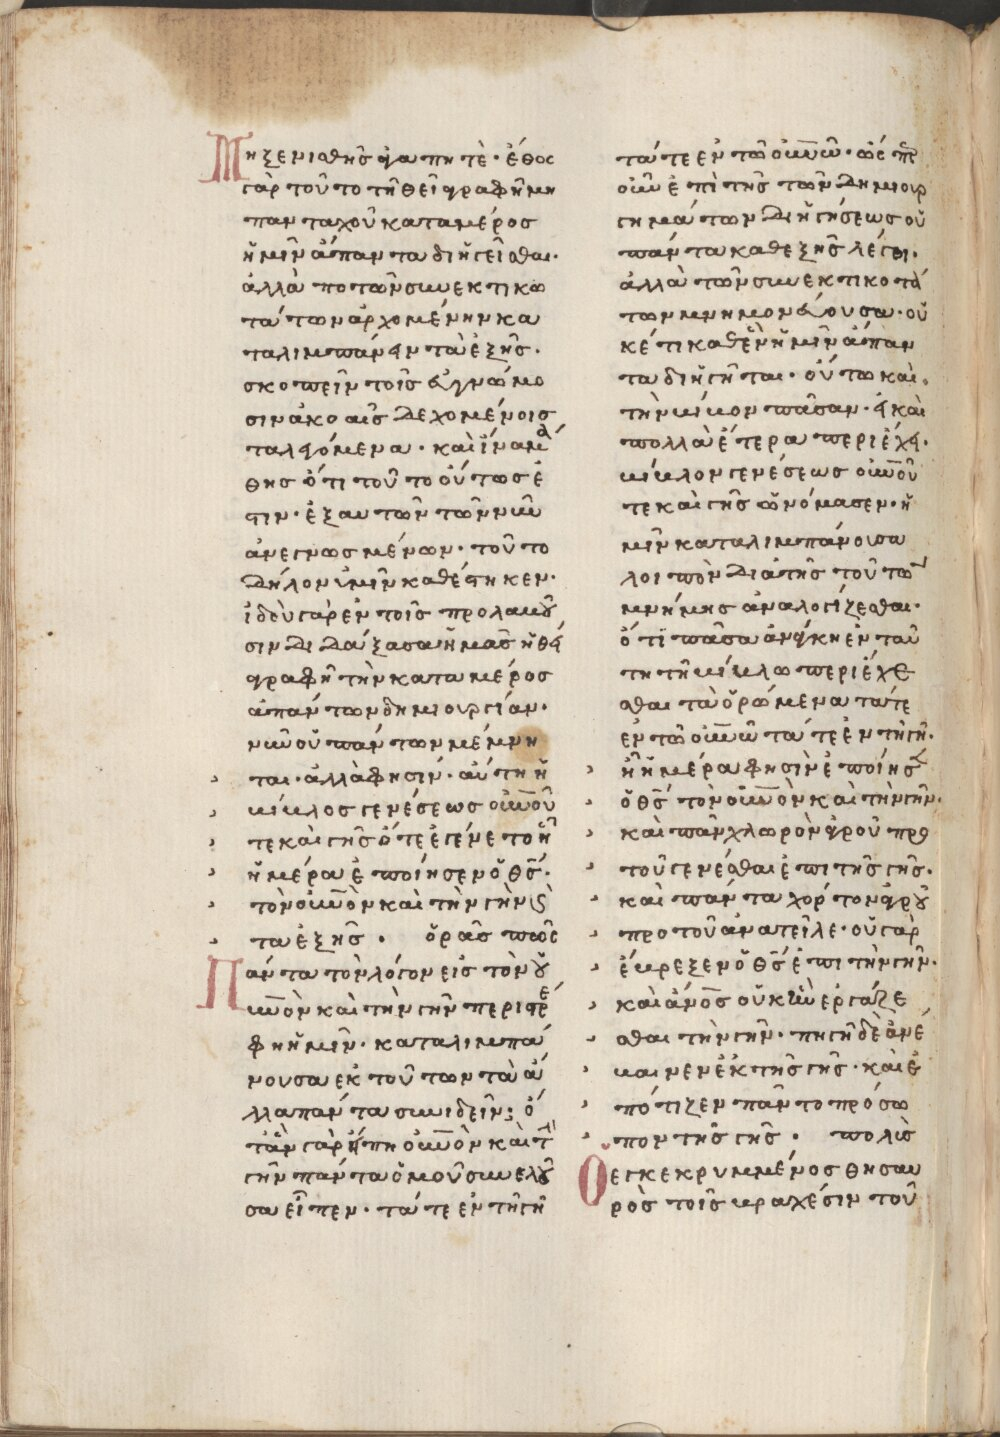 Μὴ ξενισθῆς ἀγαπητὲ· ἔθος
γὰρ τοῦτο τῆ θεῖ γραφῆ μὴ
πανταχοῦ καταμέρος
ἡμῖν ἅπαντα διηγεῖσθαι·
ἀλλὰ πο τῶν συνεκτικω
τάτων ἀρχομένην κα
ταλιμπάνειν τὰ ἑξῆς·
σκοπεῖν τοῖς εὐγνώμο
σιν ἀκοαῖς δεχομένοις
τα λεγόμενα· καὶ ἵνα μά
θης ὅτι τοῦτο οὕτως ἐ
στιν· ἐξ αυτῶν τῶν νῦν
ἀνεγνωσμένων· τοῦτο
δῆλον ὑμῖν καθέστηκεν·
ἰδοὺ γὰρ ἐν τοῖς προλαβοῦ
σιν διδάξασα ἡμᾶς ἡ θεία
γραφὴ τὴν κατα μέρος
ἁπάντων δημιουργίαν·
νῦν οὐ πάντων μέμνη
ται· ἀλλὰ φησίν· αὕτη ἡ
κύκλος γενέσεως οὐνοῦ
τε καὶ γῆς ὅτε ἐγένετο ἧ
ἡμέρα ἐποίησεν ὁ θς·
τὸν οὐνὸν καὶ τὴν γὴν ϗ
τα ἑξῆς· ὁρᾶς πῶς
Πάντα τὸν λόγον εἰς τὸν οὐ
νὸν καὶ τὴν γῆν περιστρέ
φη ἡμῖν· καταλιμπά
νουσα ἐκ τούτων τὰ ἄ
λλα πάντα συνιδεῖν; ὅ
τὰν γὰρ εἴπη οὐνὸν καὶ τὴν
γῆν πάντα ὁμοῦ συνελοῦ
σα εἶπεν· τά τε ἐν τῆ γῆ
τά τε ἐν τῶ οὐνῶ· ὥσπερ
οὖν ἐπὶ τῆς τῶν δημιουρ
γημάτων διηγήσεως οὐ
πάντα καθεξῆς λέγει·
ἀλλὰ τῶν συνεκτικοτά
των μνημονεύουσα· οὐ
κέτι καθὲν ἡμῖν ἅπαν
τα διηγῆται· οὕτω καὶ
τὴν βίβλον πᾶσαν· εἰ καὶ
πολλὰ ἕτερα περιέχει·
βίβλον γενέσεως οὐνοῦ
τε καὶ γῆς ὠνόμασεν· ἡ
μῖν καταλιμπάνουσα
λοιπὸν διὰ τῆς τούτων
μνήμης ἀναλογίζεσθαι·
ὅτι πᾶσα ἀνάγκη ἐν ταύ
τη τῆ βίβλω περιέχε
σθαι τὰ ὁρώμενα τά τε
ἐν τῶ οὐνῶ τά τε ἐν τῆ γῆ·
ἧ ἡμέρα φησὶν ἐποίησεν
ὁ θς τὸν οὐνὸν καὶ τὴν γῆν·
καὶ πᾶν χλωρὸν ἀγροῦ πρὸ
τοῦ γενέσθαι ἐπι τῆς γῆς·
καὶ πάντα χόρτον ἀγροῦ
προ τοῦ ἀνατεῖλε· οὐ γὰρ
ἔβρεξεν ὁ θς ἐπι τὴν γῆν·
καὶ ἀνος οὐκ ἦν ἐργάζε
σθαι τὴν γῆν· πηγὴ δὲ ἀνέ
βαινεν ἐκ τῆς γῆς· καὶ ἐ
πότιζεν πᾶν το πρόσω
πον τῆς γῆς· πολὺς
Ὁ ἐγκεκρυμμένος θησαυ
ρὸς τοῖς βραχέσιν τού